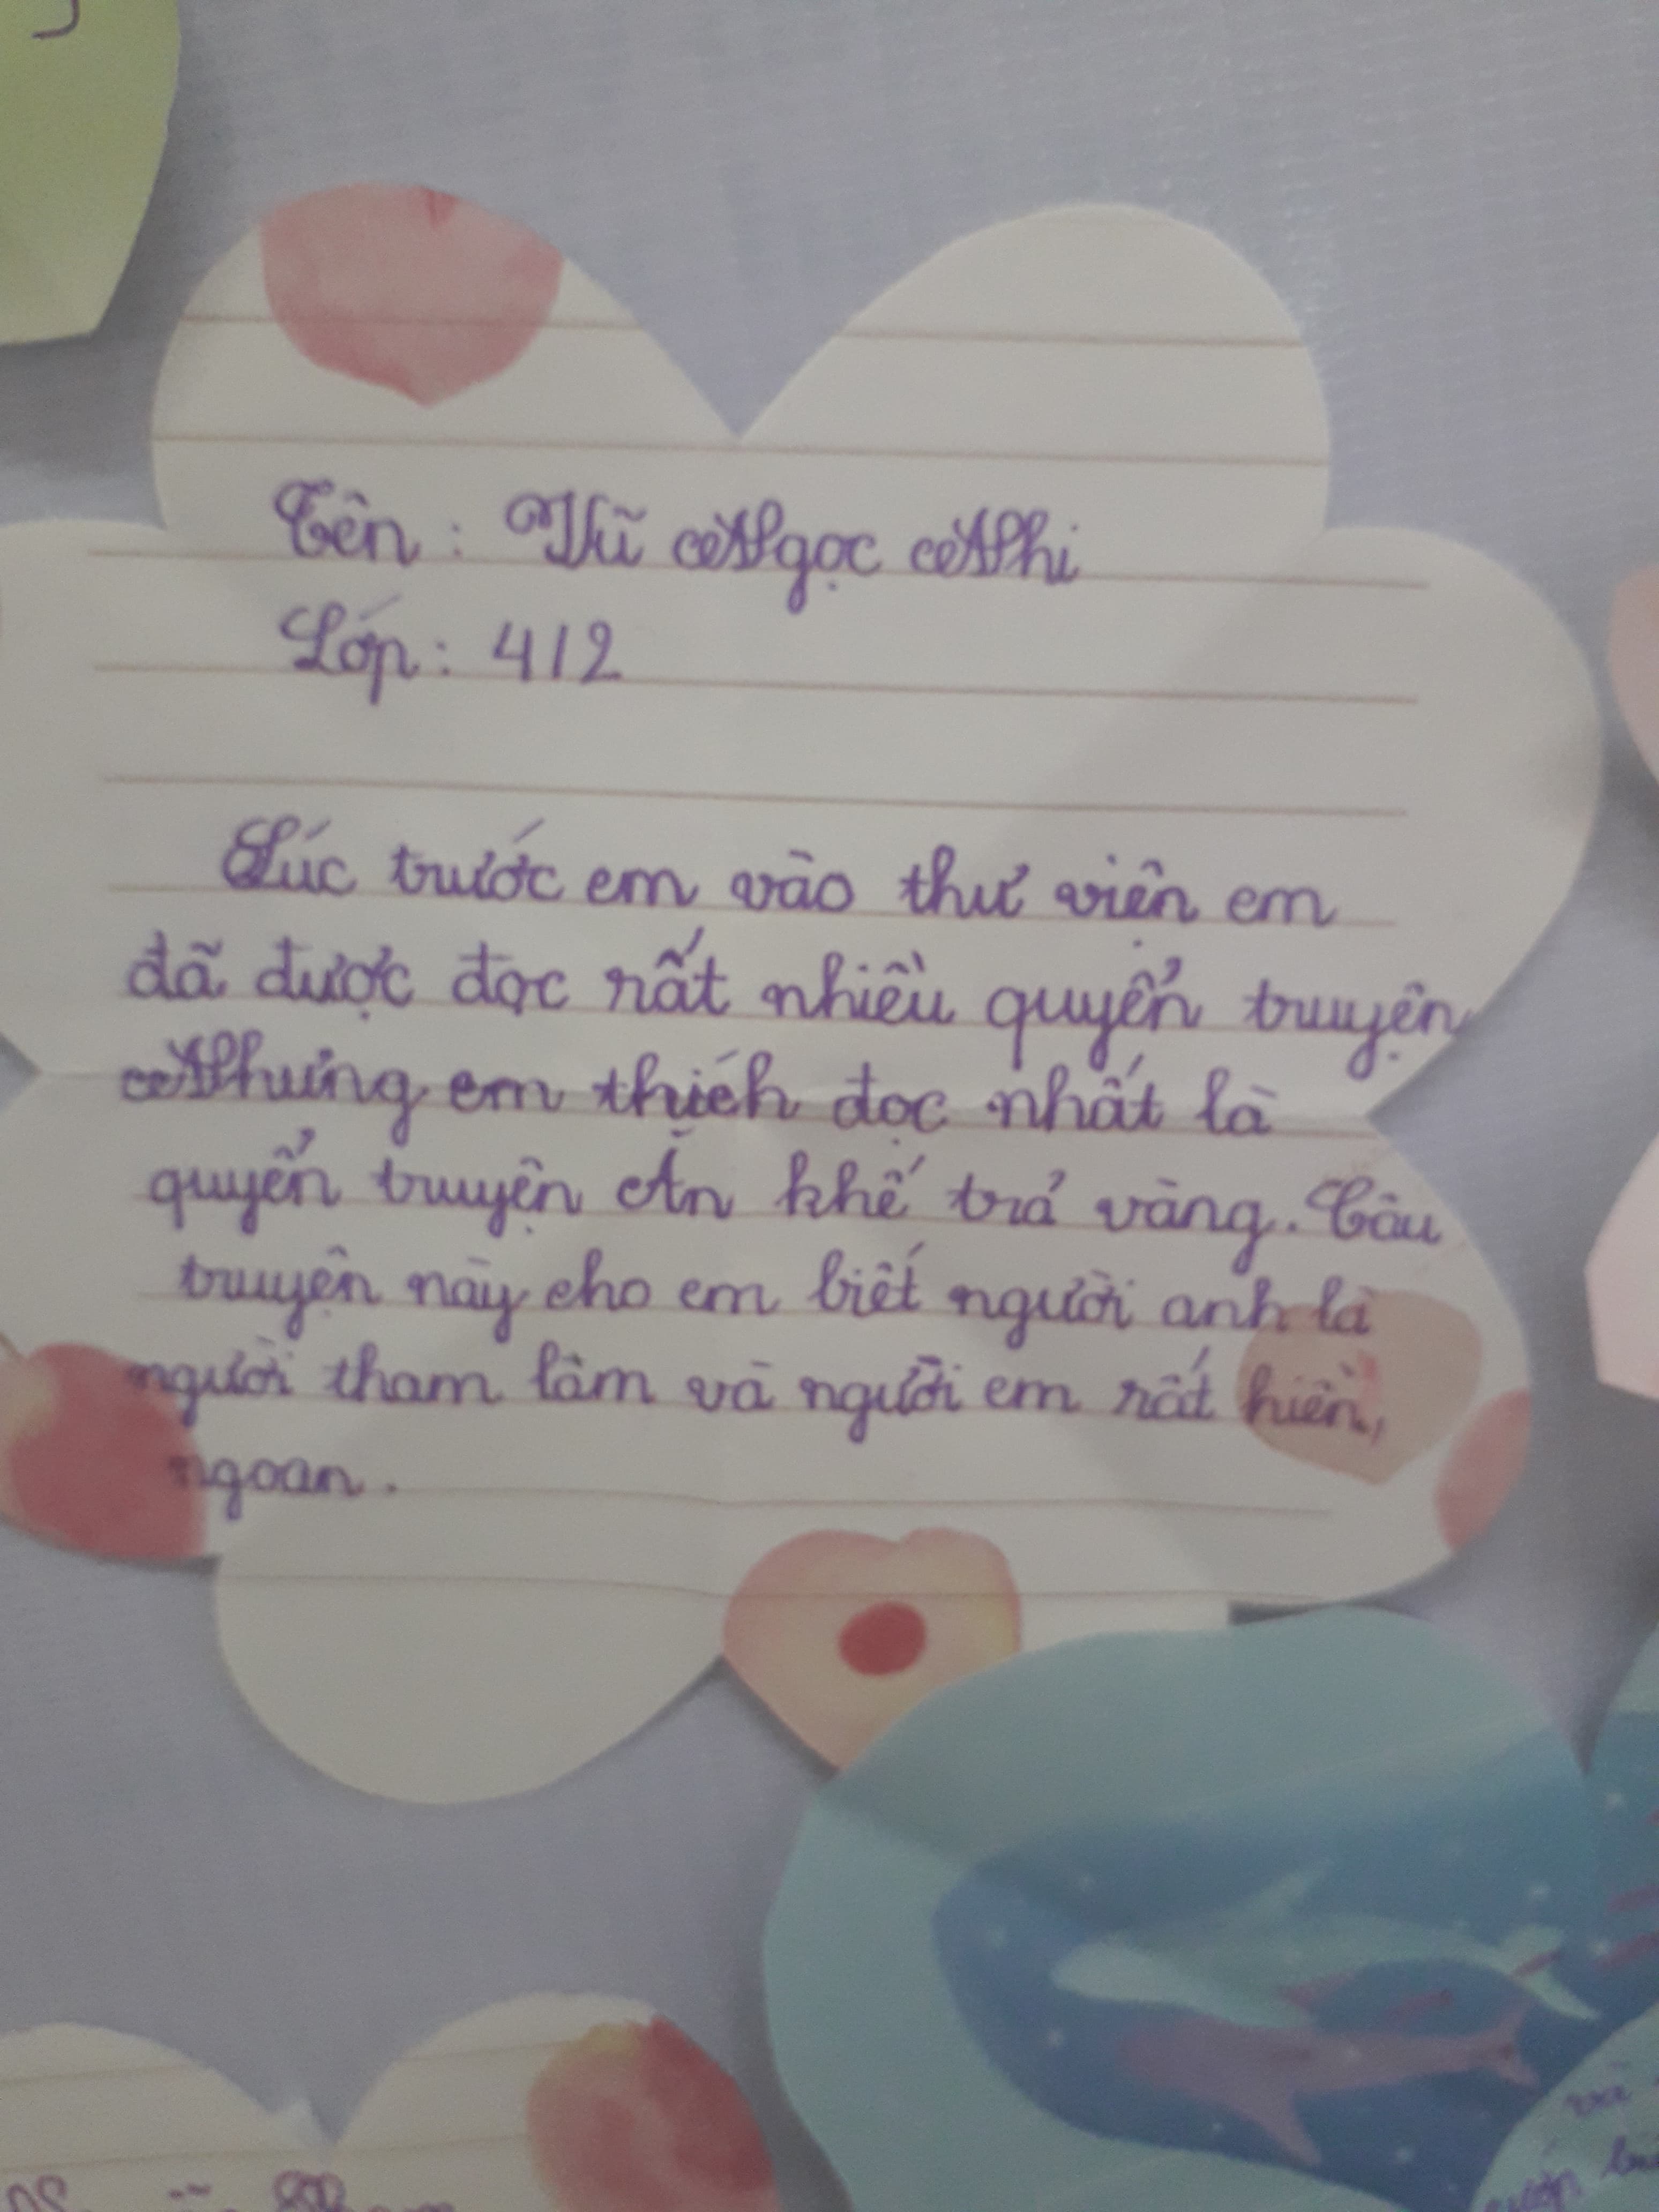 Tên : Vũ Ngọc Nhi
Lớp : 4/2
Lúc trước em vào thư viện em
đã được đọc rất nhiều quyển truyện
Nhưng em thích đọc nhất là
quyển truyện Ăn khế trả vàng. Câu
truyện này cho em biết người anh là
người tham lam và người em rất hiền,
ngoan.